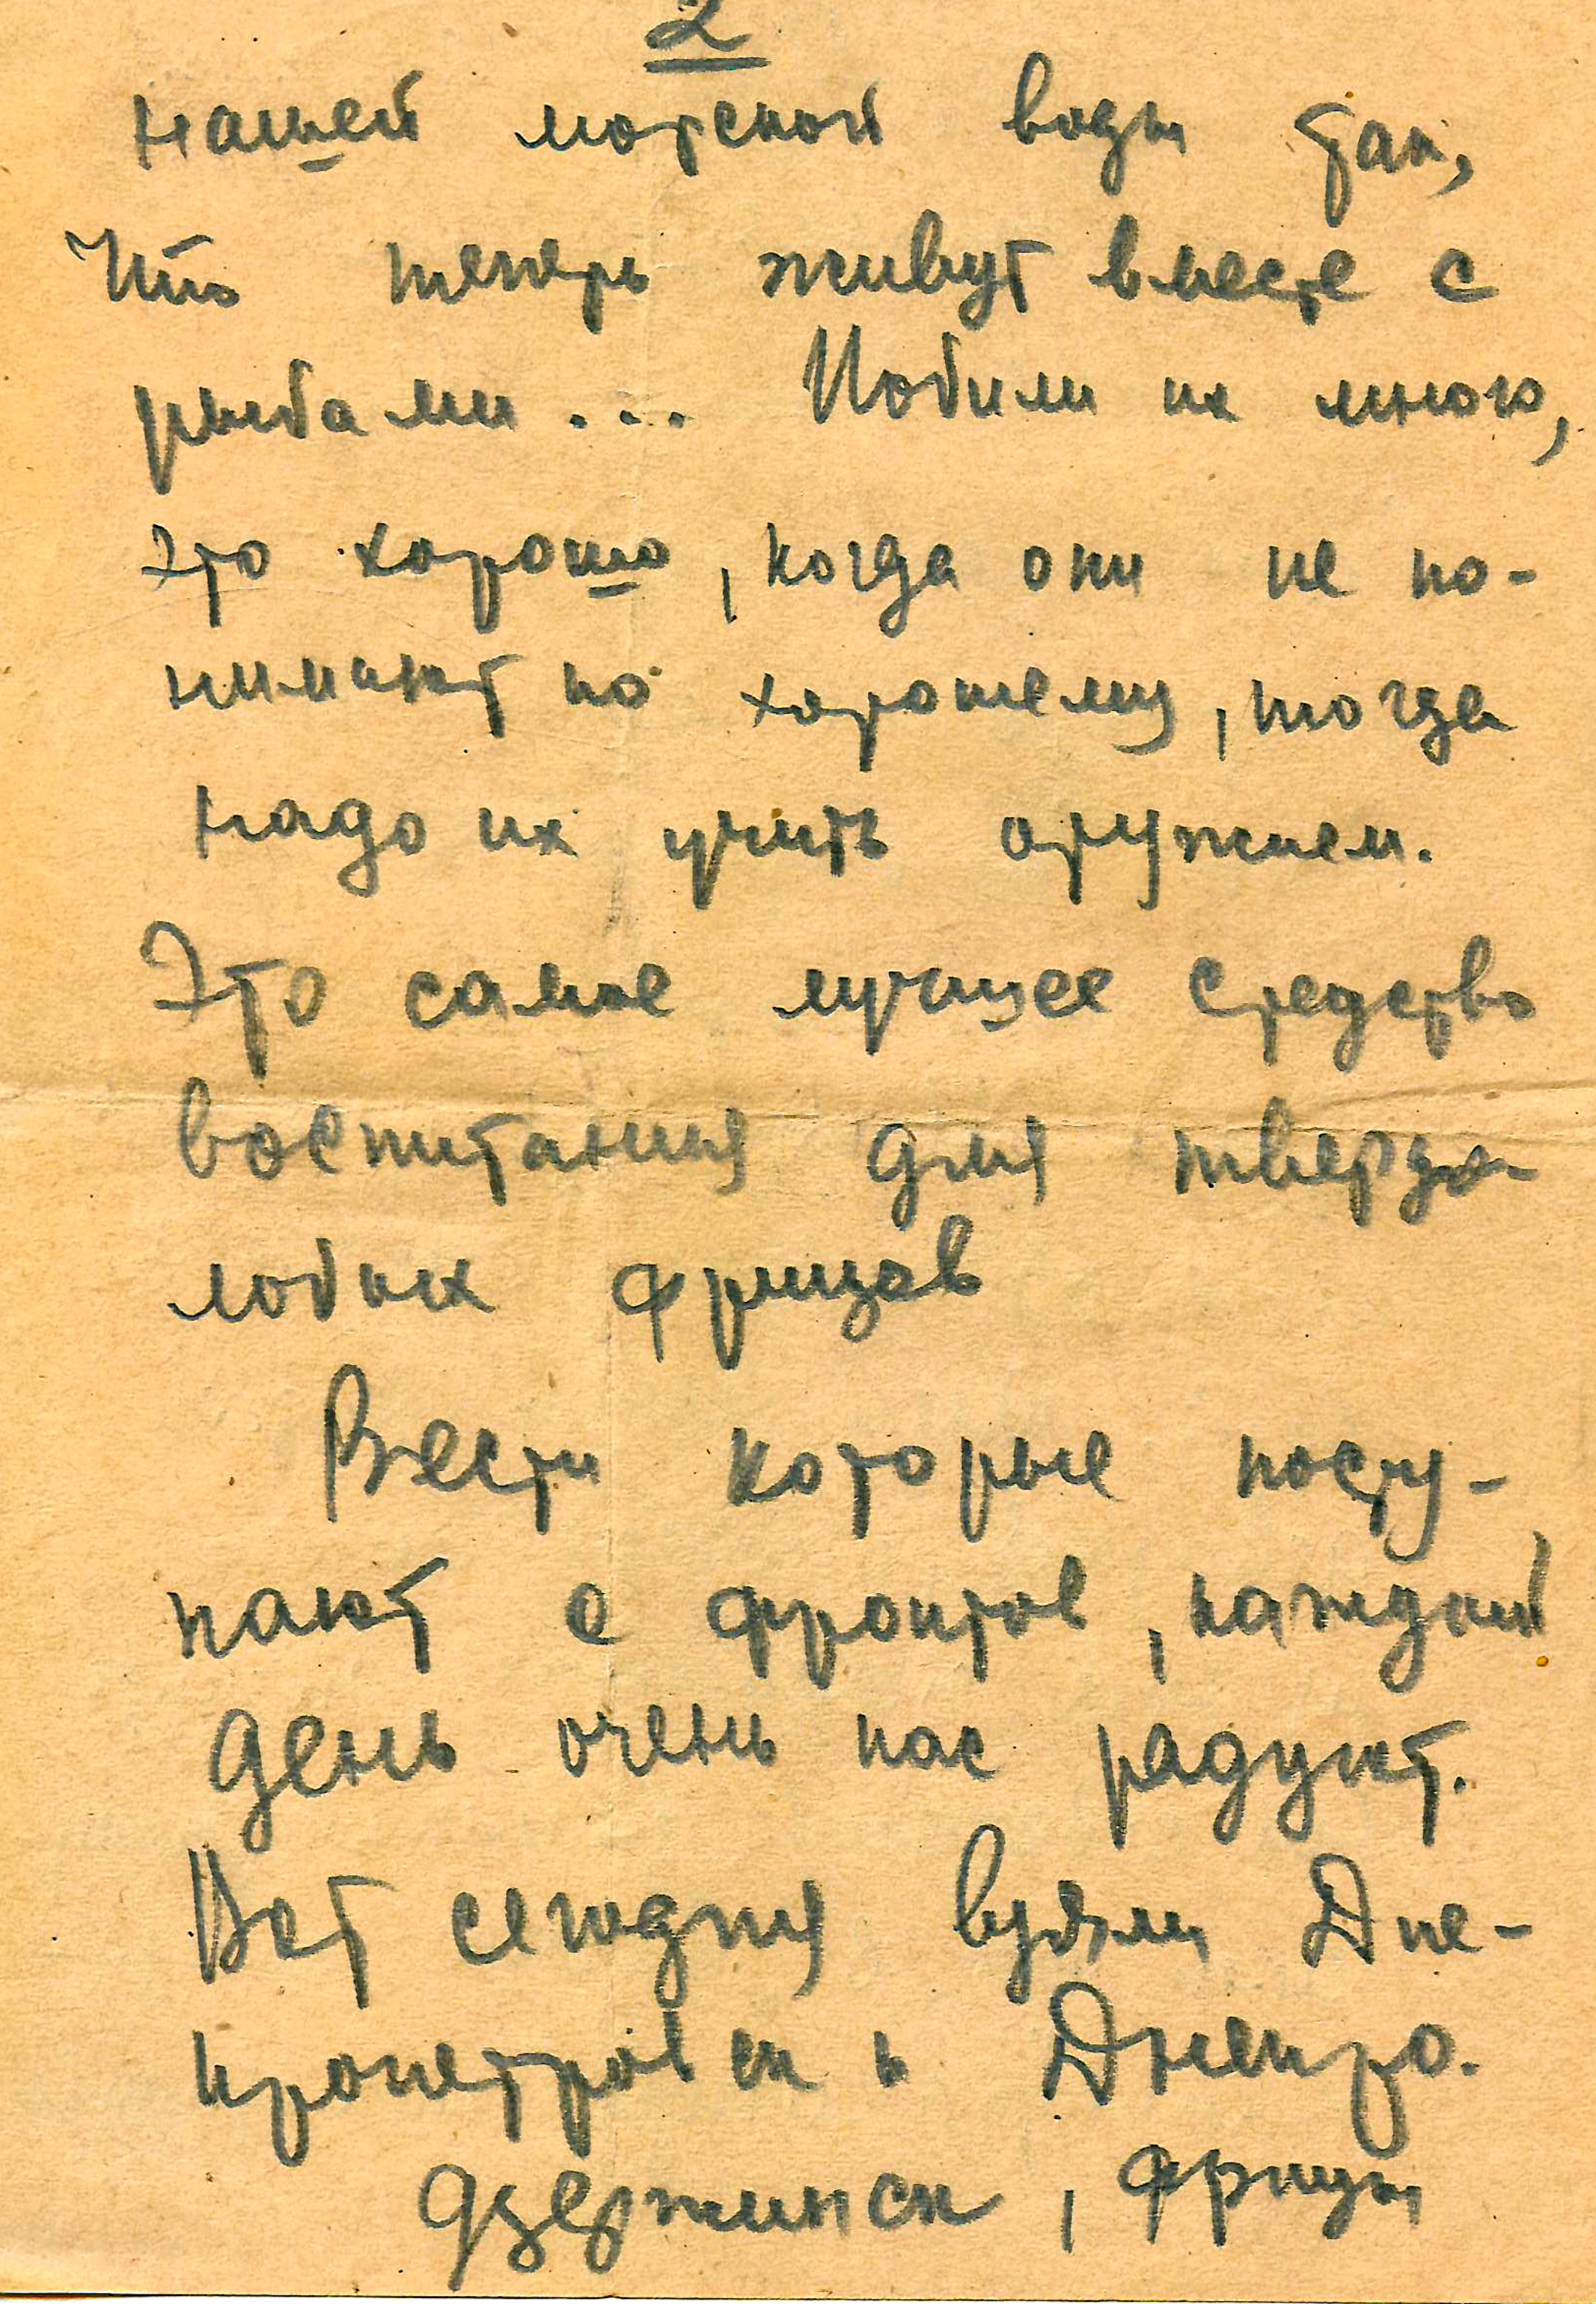 2
нашей морской воды так,
что теперь живут вместе с
рыбами... Побили их много,
это хорошо, когда они не по-
нимают по хорошему, тогда
надо их учить оружием.
Это самое лучшее средство
воспитания для твердо-
лобых фрицов
Вести которые посту-
пают с фронтов, каждый
день очень нас радуют.
Вот сегодня взяли Дне-
пропетровск и Днепро-
дзержинск, фрицы